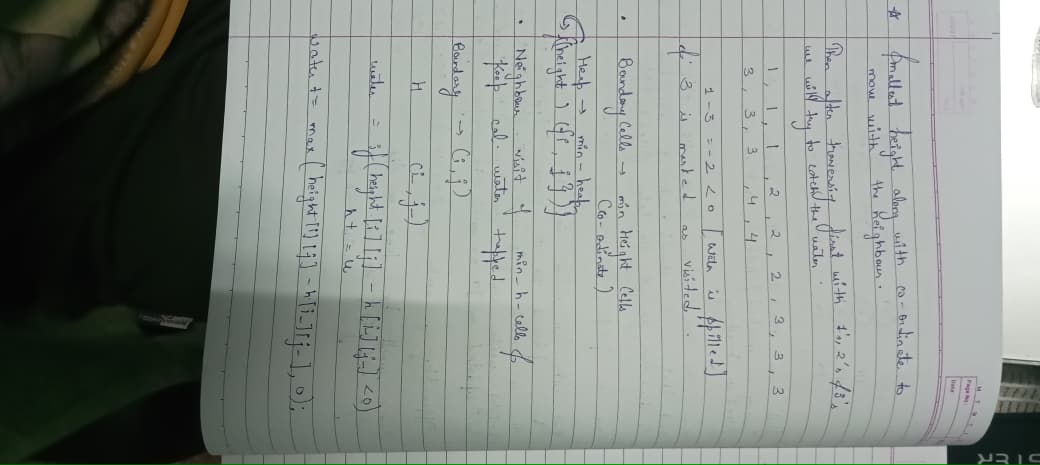 STER
M T W T
Page No.:
Date:
☆ Smallest height along with co-ordinate to
move with the neighbour.
Then after traversig first with 1's, 2's & 3's,
we will try to catch the water.
1, 1, 1, 2, 2, 2, 3, 3, 3
3, 3, 3, 4, 4
1 - 3 = - 2 < 0 [Water is spilled]
& 3 is marked as visited.
• Boundary Cells → min Height Cells
(co-ordinate)
Heap → min-heap
{(height) ({i, j})}
• Neighbour visit of min-h-cells &
keep cal. water trapped
Boundary → (i, j)
H (i_, j_)
water = if (height [i] [j] - h [i_] [j_] < 0)
water += max (height [i] [j] - h[i_][j_], 0);